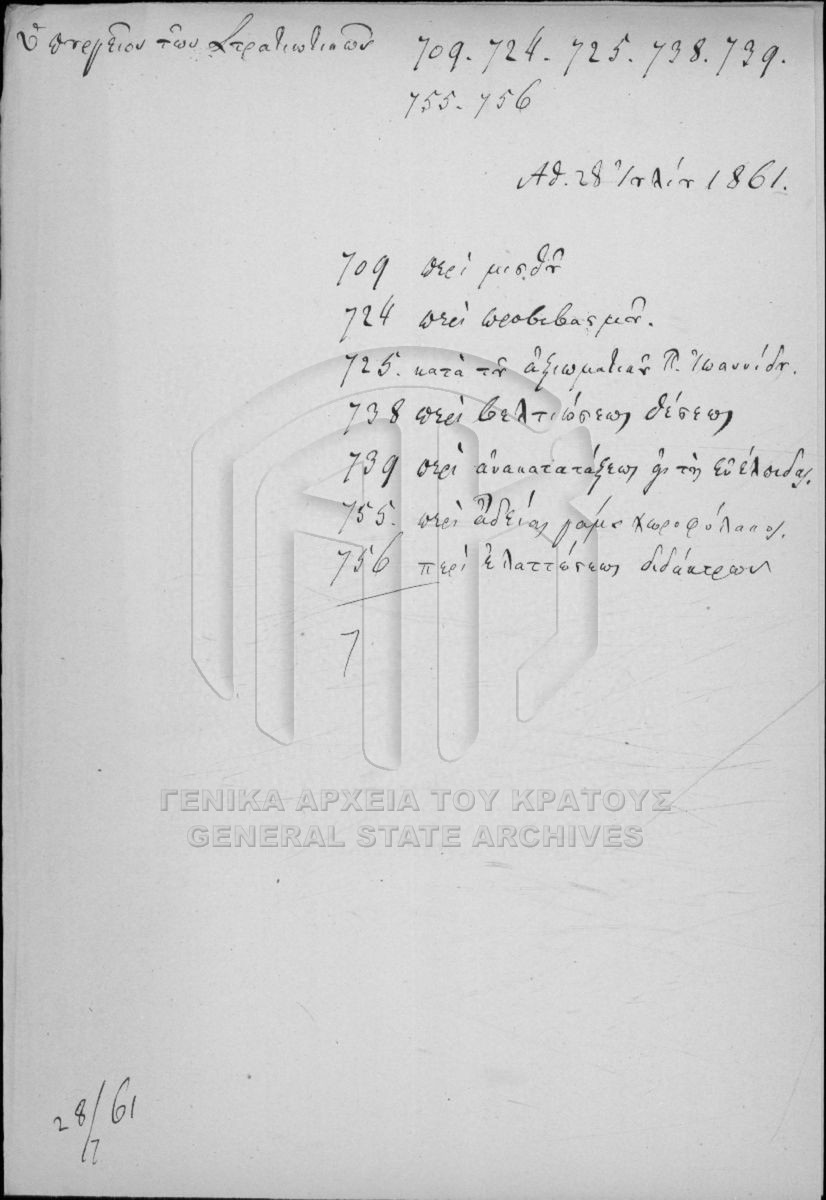 Ὑπουργεῖον τῶν Στρατιωτικῶν
709. 724. 725. 738. 739.
755. 756
Ἀθ. 28 Ἰουλίου 1861.
709 περὶ μισθοῦ
724 περὶ προβιβασμοῦ.
725. κατὰ τοῦ ἀξιωματικοῦ Π. Ἰωαννίδου.
738 περὶ βελτιώσεως θέσεως
739 περὶ ἀνακατατάξεως εἰς τοὺς εὐέλπιδας.
755. περὶ ἀδείας γάμου χωροφύλακος.
756 περὶ ἐλαττώσεως διδάκτρων
7
ΓΕΝΙΚΑ ΑΡΧΕΙΑ ΤΟΥ ΚΡΑΤΟΥΣ
GENERAL STATE ARCHIVES
28/7/61